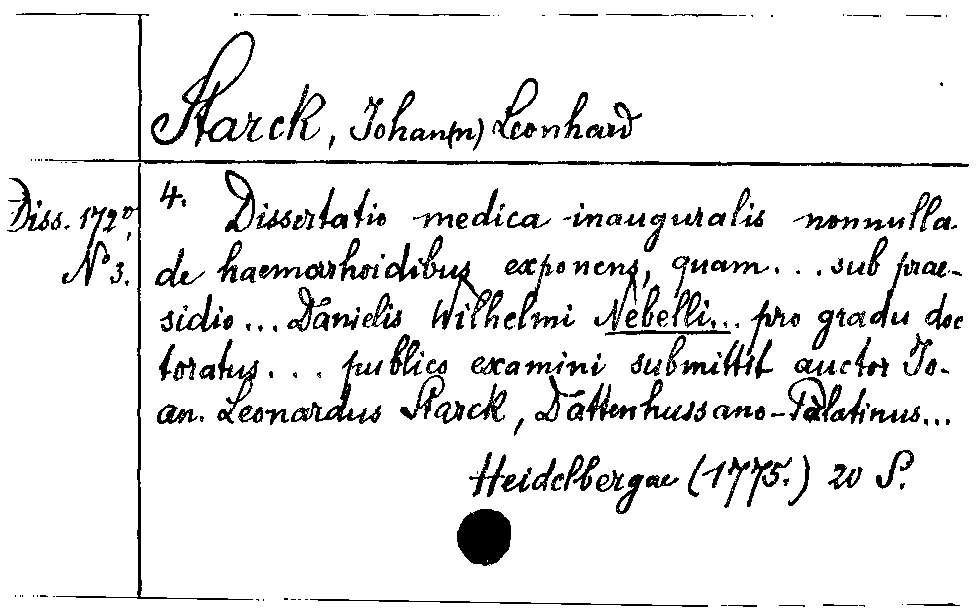 Starck, Johan(n) Leonhard
Diss. 172⁰,
N⁰ 3.
4. Dissertatio medica inauguralis nonnulla
de haemorrhoidibus exponens, quam... sub prae-
sidio... Danielis Wilhelmi Nebelli... pro gradu doc
toratus... publico examini submittit auctor Jo-
an. Leonardus Starck, Dattenhussano-Palatinus...
Heidelbergae (1775.) 20 S.